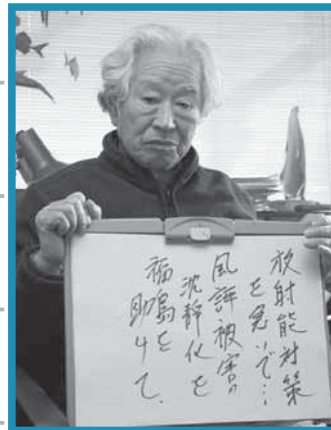 放射能対策
を急いで…
風評被害の
沈静化を
福島を
助けて、